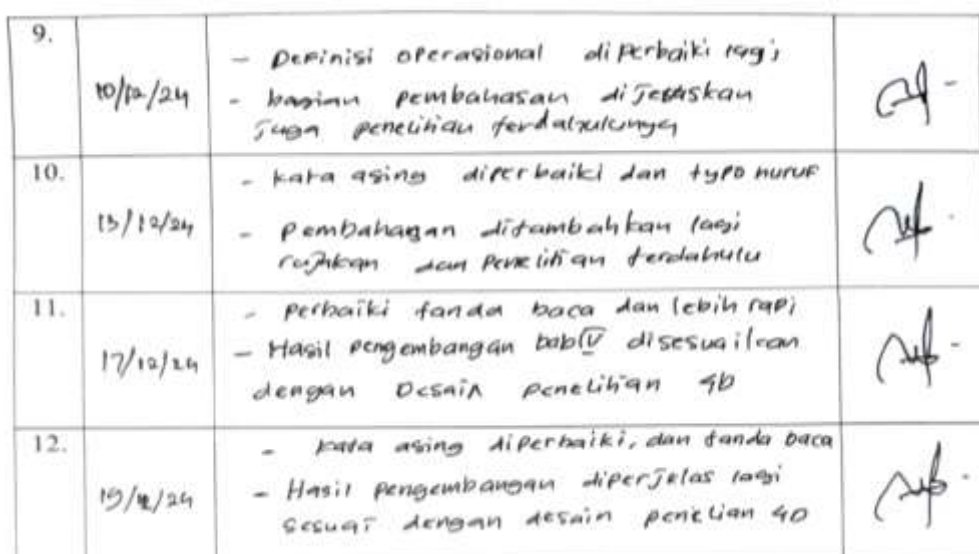 9.
10/12/24
- Definisi operasional diperbaiki lagi
- bagian pembahasan dijelaskan
juga penelitian terdahulunya
10.
13/12/24
- kata asing diperbaiki dan typo huruf
- Pembahasan ditambahkan lagi
rujukan dan penelitian terdahulu
11.
17/12/24
- perbaiki tanda baca dan lebih rapi
- Hasil pengembangan bab IV disesuaikan
dengan Desain penelitian 4D
12.
19/12/24
- kata asing diperbaiki, dan tanda baca
- Hasil pengembangan diperjelas lagi
sesuai dengan desain penelian 4D